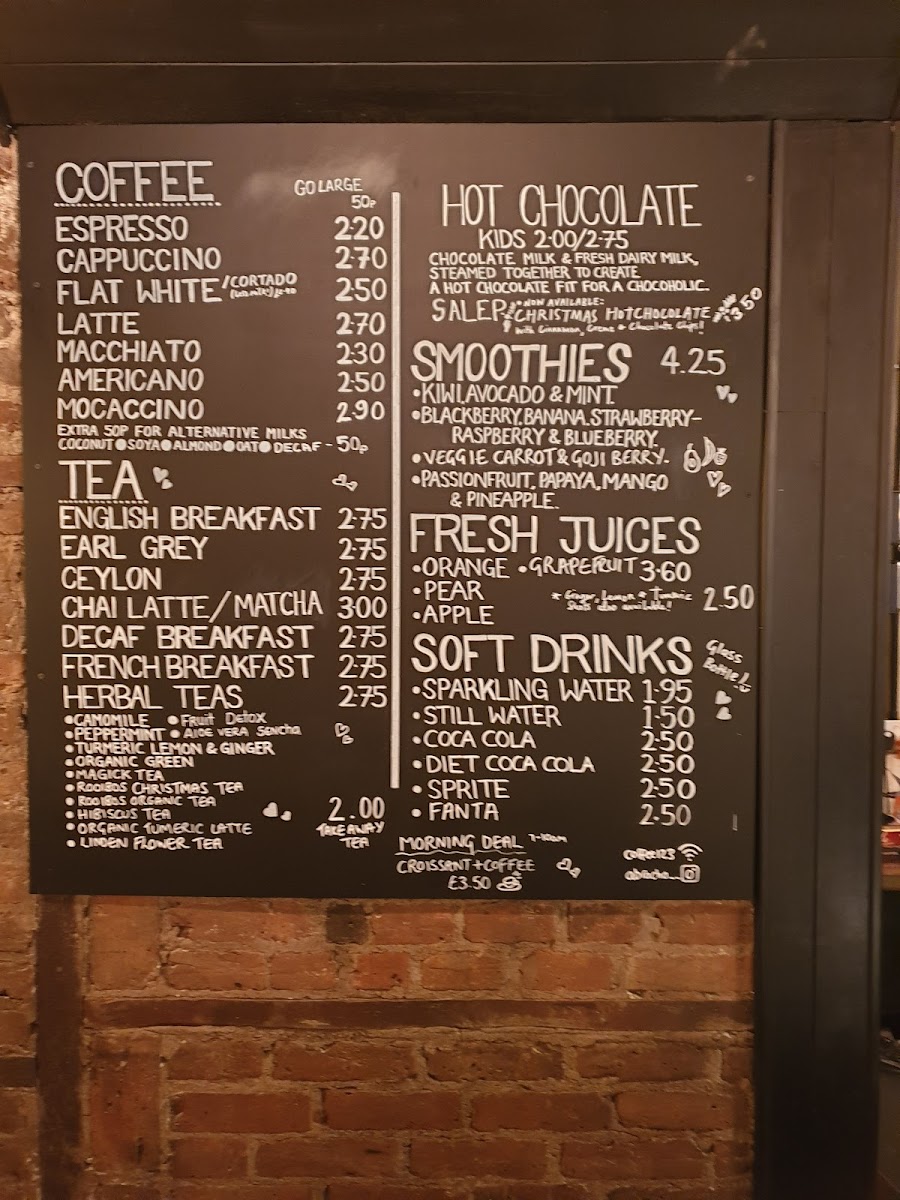 COFFEE
GO LARGE
50p
ESPRESSO 2·20
CAPPUCCINO 2·70
FLAT WHITE /CORTADO 2·50
LATTE 2·70
MACCHIATO 2·30
AMERICANO 2·50
MOCACCINO 2·90
EXTRA 50P FOR ALTERNATIVE MILKS
COCONUT●SOYA●ALMOND●OAT●DECAF - 50p
TEA
ENGLISH BREAKFAST 2·75
EARL GREY 2·75
CEYLON 2·75
CHAI LATTE/MATCHA 3·00
DECAF BREAKFAST 2·75
FRENCH BREAKFAST 2·75
HERBAL TEAS 2·75
•CAMOMILE •Fruit Detox
•PEPPERMINT •Aloe Vera Sencha
•TURMERIC LEMON & GINGER
•ORGANIC GREEN
•MAGICK TEA
•ROOIBOS CHRISTMAS TEA
•ROOIBOS ORGANIC TEA
•HIBISCUS TEA
•ORGANIC TUMERIC LATTE
•LINDEN FLOWER TEA
2.00
TAKEAWAY
TEA
HOT CHOCOLATE
KIDS 2·00/2·75
CHOCOLATE MILK & FRESH DAIRY MILK,
STEAMED TOGETHER TO CREATE
A HOT CHOCOLATE FIT FOR A CHOCOHOLIC.
SALEP
•NOW AVAILABLE:
CHRISTMAS HOTCHOCOLATE £3.50
With Cinnamon, Creme & Chocolate Chips!!
SMOOTHIES 4.25
•KIWI, AVOCADO & MINT.
•BLACKBERRY, BANANA, STRAWBERRY-
RASPBERRY & BLUEBERRY.
•VEGGIE CARROT & GOJI BERRY.
•PASSIONFRUIT, PAPAYA, MANGO
& PINEAPPLE.
FRESH JUICES
•ORANGE •GRAPEFRUIT 3·60
•PEAR
•APPLE
* Ginger, Lemon & Tumeric
Shots also available! 2.50
SOFT DRINKS
Glass
Bottle!
•SPARKLING WATER 1·95
•STILL WATER 1·50
•COCA COLA 2·50
•DIET COCA COLA 2·50
•SPRITE 2·50
•FANTA 2.50
MORNING DEAL 7-10am
CROISSANT+COFFEE
£3.50
coffee123